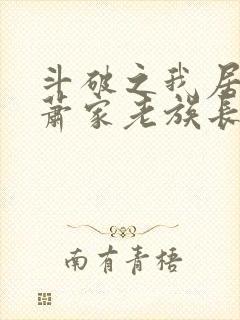 斗破之我居
萧家老族长
南有青梧